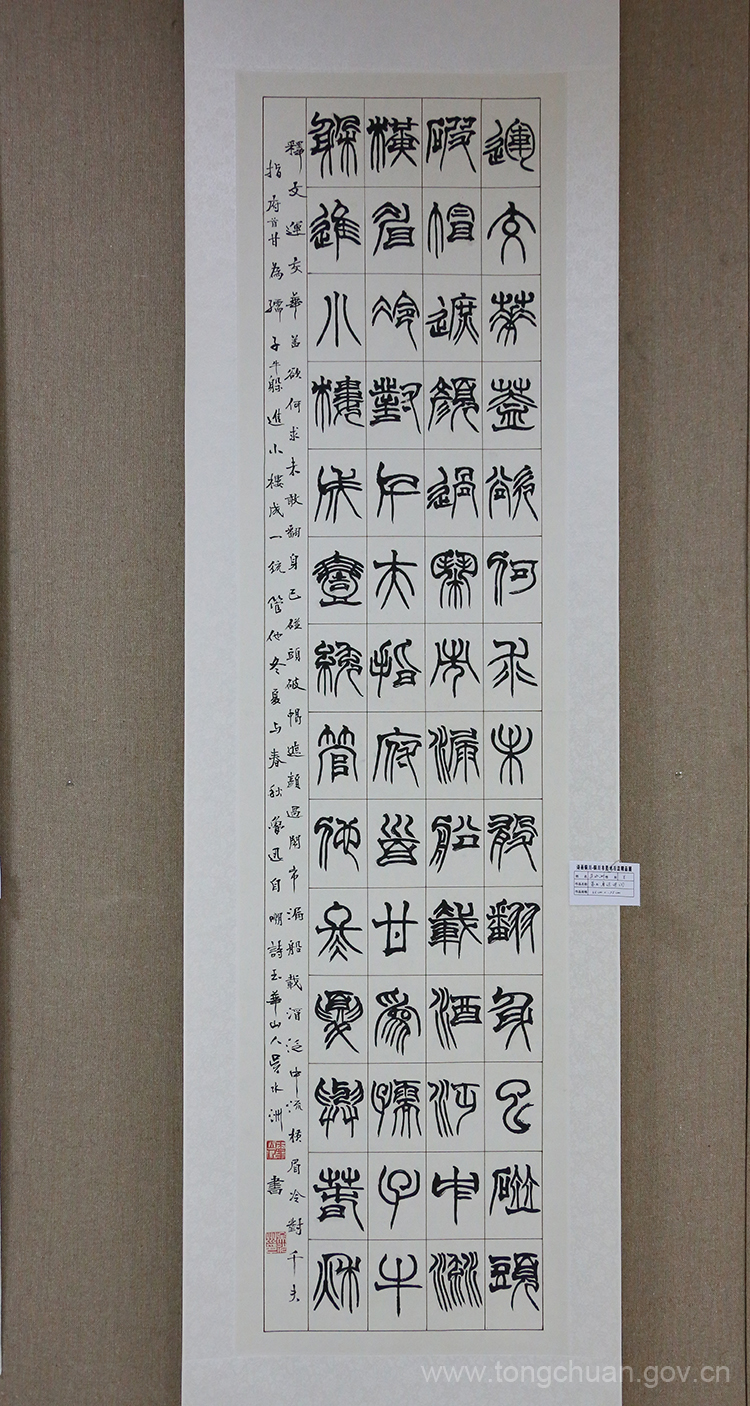 運交華蓋欲何求未敢翻身已碰頭
破帽遮顏過鬧市漏船載酒泛中流
橫眉冷對千夫指府首甘為孺子牛
躲進小樓成壹統管他冬夏與春秋
釋文運交華蓋欲何求未敢翻身已碰頭破帽遮顏過鬧市漏船載酒泛中流橫眉冷對千夫
指府首甘為孺子牛躲進小樓成一統管他冬夏与春秋魯迅自嘲詩玉華山人吳水洲書
www.tongchuan.gov.cn